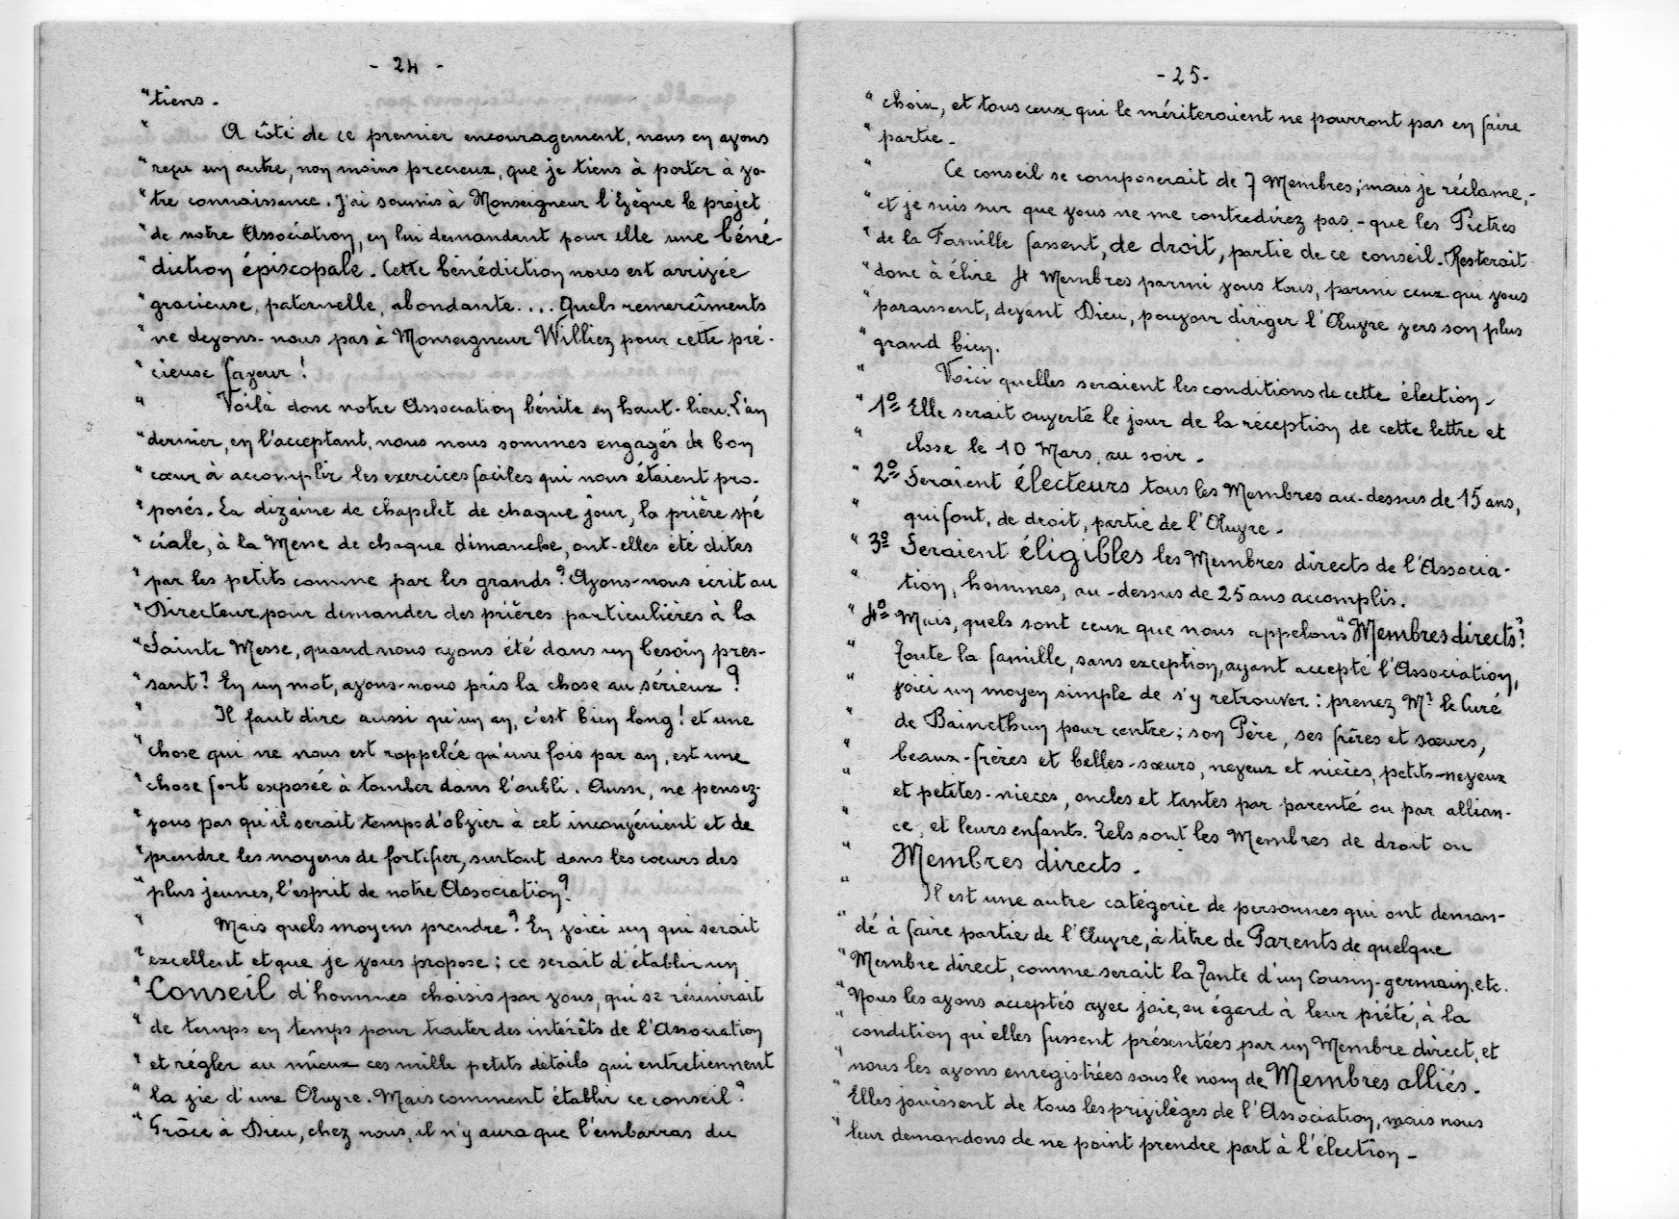 - 24 -
"tiens.
" A côté de ce premier encouragement, nous en avons
"reçu un autre, non moins precieux, que je tiens à porter à vo-
"tre connaissance. J'ai soumis à Monseigneur l'Evêque le projet
"de notre Association, en lui demandant pour elle une béné-
"diction épiscopale. Cette bénédiction nous est arrivée
"gracieuse, paternelle, abondante.... Quels remercîments
"ne devons-nous pas à Monseigneur Williez pour cette pré-
"cieuse faveur!
" Voilà donc notre Association bénite en haut-lieu. L'an
"dernier, en l'acceptant, nous nous sommes engagés de bon
"cœur à accomplir les exercices faciles qui nous étaient pro-
"posés. La dizaine de chapelet de chaque jour, la prière spé
"ciale, à la Messe de chaque dimanche, ont-elles été dites
"par les petits comme par les grands? Avons-nous écrit au
"Directeur pour demander des prières particulières à la
"Sainte Messe, quand nous avons été dans un besoin pres-
"sant? En un mot, avons-nous pris la chose au sérieux?
" Il faut dire aussi qu'un an, c'est bien long! et une
"chose qui ne nous est rappelée qu'une fois par an, est une
"chose fort exposée à tomber dans l'oubli. Aussi, ne pensez-
"vous pas qu'il serait temps d'obvier à cet inconvénient et de
"prendre les moyens de fortifier, surtout dans les cœurs des
"plus jeunes, l'esprit de notre Association?
" Mais quels moyens prendre? En voici un qui serait
"excellent et que je vous propose: ce serait d'établir un
"Conseil d'hommes choisis par vous, qui se réunirait
"de temps en temps pour traiter des intérêts de l'Association
"et régler au mieux ces mille petits détails qui entretiennent
"la vie d'une Œuvre. Mais comment établir ce conseil?
"Grâce à Dieu, chez nous, il n'y aura que l'embarras du
- 25 -
"choix, et tous ceux qui le mériteraient ne pourront pas en faire
"partie.
" Ce conseil se composerait de 7 Membres; mais je réclame,-
"et je suis sur que vous ne me contredirez pas,- que les Prêtres
"de la Famille fassent, de droit, partie de ce conseil. Resterait
"donc à élire 4 Membres parmi vous tous, parmi ceux qui vous
"paraissent, devant Dieu, pouvoir diriger l'Œuvre vers son plus
"grand bien.
" Voici quelles seraient les conditions de cette élection.
"1º Elle serait ouverte le jour de la réception de cette lettre et
" close le 10 Mars, au soir.
"2º Seraient électeurs tous les Membres au-dessus de 15 ans,
" qui font, de droit, partie de l'Œuvre.
"3º Seraient éligibles les Membres directs de l'Associa-
" tion, hommes, au-dessus de 25 ans accomplis.
"4º Mais, quels sont ceux que nous appelons "Membres directs"?
" Toute la famille, sans exception, ayant accepté l'Association,
" voici un moyen simple de s'y retrouver: prenez Mr le Curé
" de Bainethun pour centre; son Père, ses frères et sœurs,
" beaux-frères et belles-sœurs, neveux et nièces, petits-neveux
" et petites-nieces, oncles et tantes par parenté ou par allian-
" ce, et leurs enfants. Tels sont les Membres de droit ou
" Membres directs.
" Il est une autre catégorie de personnes qui ont deman-
"dé à faire partie de l'Œuvre, à titre de Parents de quelque
"Membre direct, comme serait la Tante d'un Cousin-germain, etc.
"Nous les avons acceptés avec joie, eu égard à leur piété, à la
"condition qu'elles fussent présentées par un Membre direct, et
"nous les avons enregistrées sous le nom de Membres alliés.
"Elles jouissent de tous les privilèges de l'Association, mais nous
"leur demandons de ne point prendre part à l'élection.